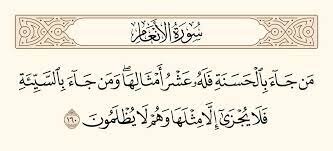 سُورَةُ الأَنعَامِ
مَن جَآءَ بِٱلْحَسَنَةِ فَلَهُۥ عَشْرُ أَمْثَالِهَا ۖ وَمَن جَآءَ بِٱلسَّيِّئَةِ
فَلَا يُجْزَىٰٓ إِلَّا مِثْلَهَا وَهُمْ لَا يُظْلَمُونَ ١٦٠